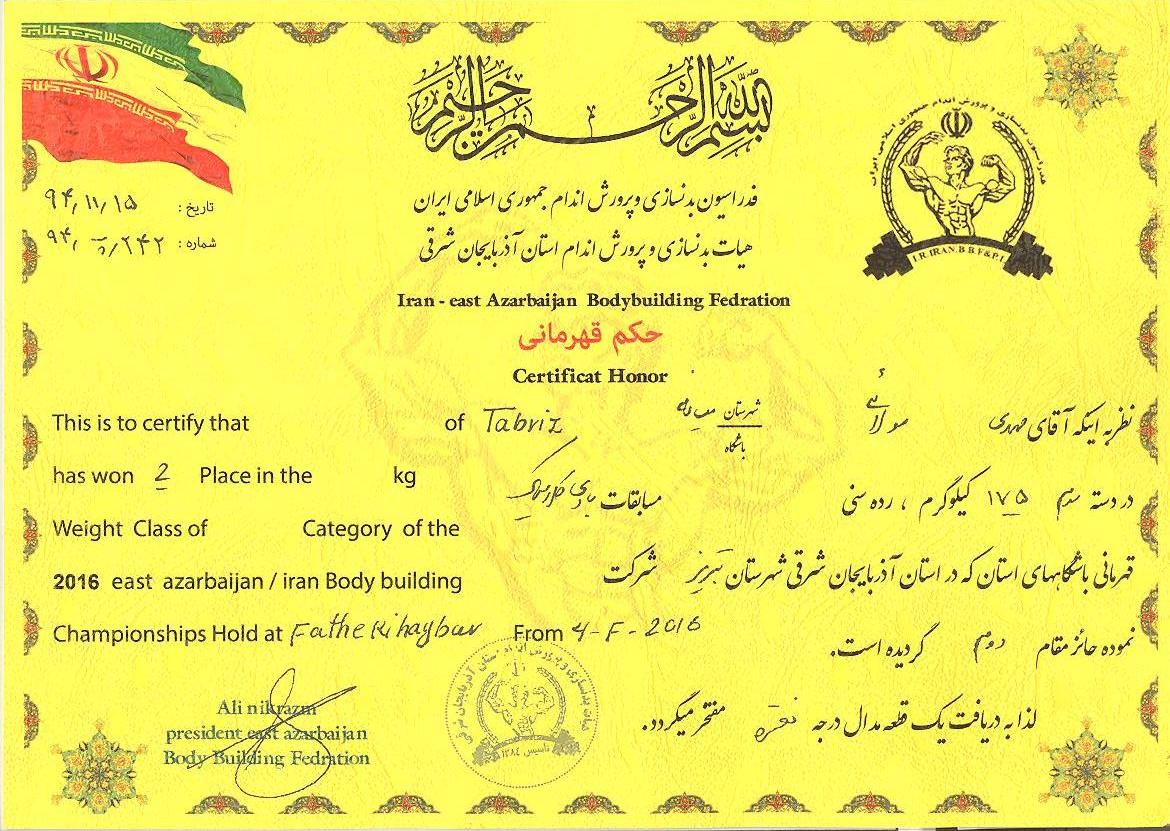 بسم الله الرحمن الرحیم
فدراسیون بدنسازی و پرورش اندام جمهوری اسلامی ایران
I.R.IRAN.B.B.F&P.L
تاریخ : ۹۴/۱۱/۱۵
شماره :
هیات بدنسازی و پرورش اندام استان آذربایجان شرقی
Iran - east Azarbaijan Bodybuilding Fedration
حکم قهرمانی
Certificat Honor
This is to certify that of Tabriz
has won 2 Place in the kg
Weight Class of Category of the
2016 east azarbaijan / iran Body building
Championships Hold at Fathe Kihaybar From 4-F-2016
نظر به اینکه آقای مهدی مولائی شهرستان
باشگاه
در دسته سوم ۱۷۵ کیلوگرم ، رده سنی مسابقات بادی کلاسیک
قهرمانی باشگاههای استان که در استان آذربایجان شرقی شهرستان تبریز شرکت
نموده حائز مقام دوم گردیده است.
لذا به دریافت یک قطعه مدال درجه نقره مفتخر میگردد.
Ali nikrazm
president east azarbaijan
Body Building Fedration
هیات بدنسازی و پرورش اندام استان آذربایجان شرقی
تاسیس ۱۳۸۴